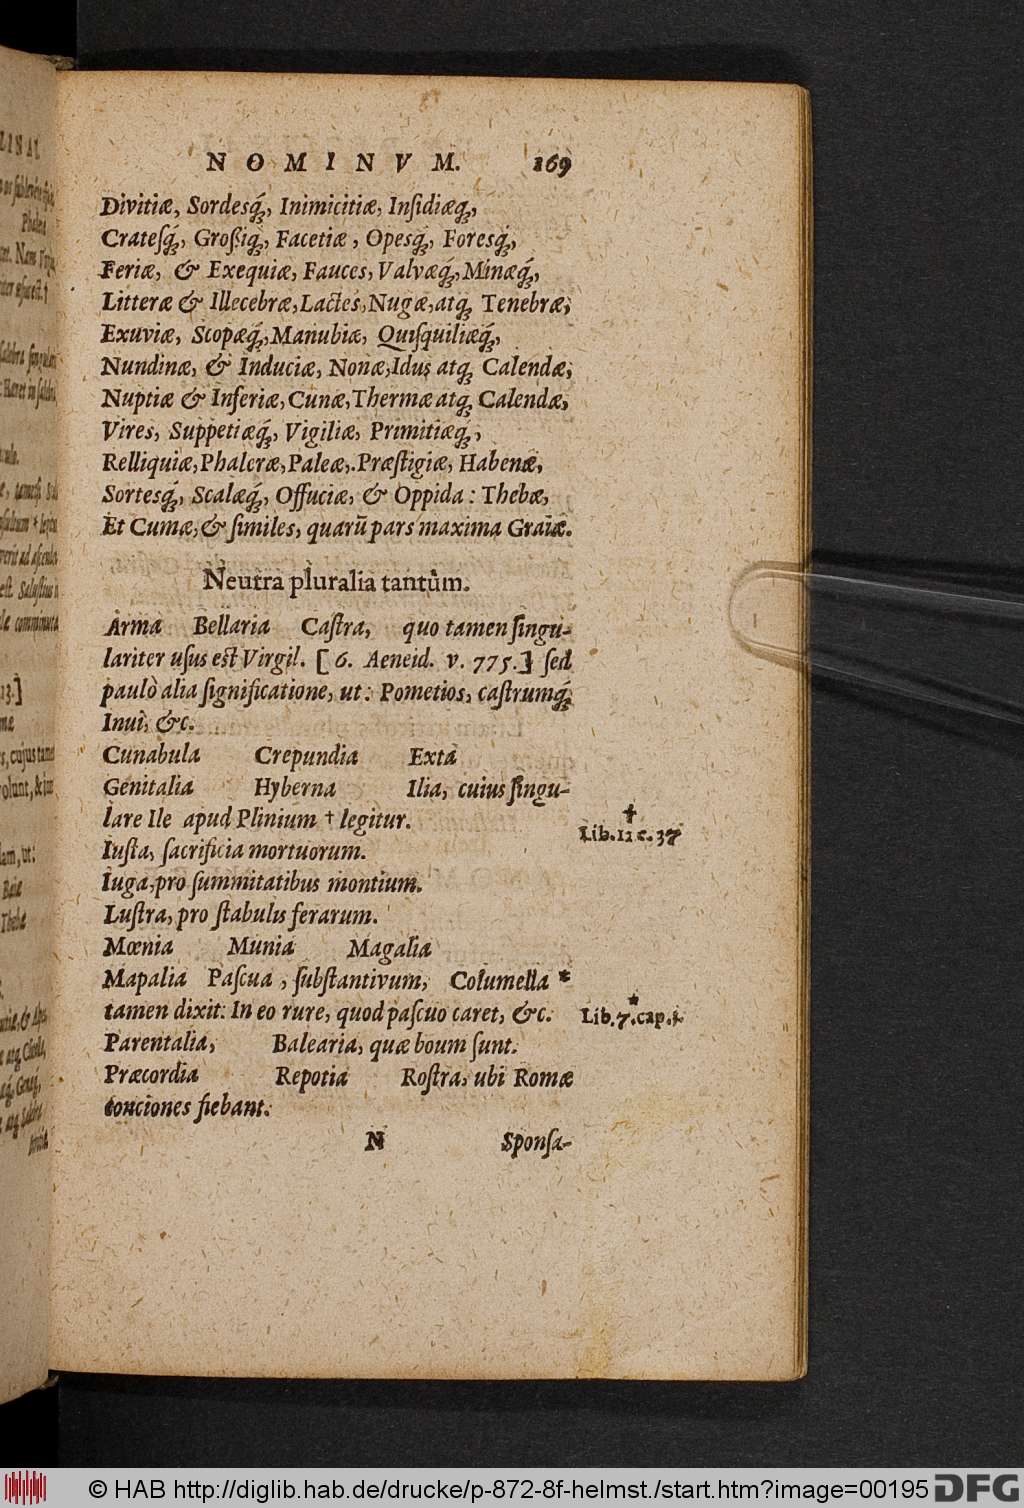 NOMINVM. 169
Divitiæ, Sordesq́;, Inimicitiæ, Inſidiæq́;,
Crateſq́;, Großiq;, Facetiæ, Opesq́;, Foresq́;,
Feriæ, & Exequiæ, Fauces, Valvæq́;, Minæq́;,
Litteræ & Illecebræ, Lactes, Nugæ, atq; Tenebræ,
Exuviæ, Scopæq́;, Manubiæ, Quiſquiliæq́;,
Nundinæ, & Induciæ, Nonæ, Idus atq; Calendæ,
Nuptiæ & Inferiæ, Cunæ, Thermæ atq; Calendæ,
Vires, Suppetiæq́;, Vigiliæ, Primitiæq;,
Relliquiæ, Phaleræ, Paleæ,. Præſtigiæ, Habenæ,
Sortesq́;, Scalæq́;, Offuciæ, & Oppida : Thebæ,
Et Cumæ, & ſimiles, quarū pars maxima Graiæ.
Neutra pluralia tantùm.
Arma Bellaria Caſtra, quo tamen ſingu-
lariter uſus eſt Virgil. [ 6. Aeneid. v. 775.] ſed
paulò alia ſignificatione, ut: Pometios, caſtrumq́;
Inui, &c.
Cunabula Crepundia Exta
Genitalia Hyberna Ilia, cuius ſingu-
lare Ile apud Plinium † legitur.
†
Lib. 11 c. 37
Iuſta, ſacrificia mortuorum.
Iuga, pro ſummitatibus montium.
Luſtra, pro ſtabulis ferarum.
Mœnia Munia Magalia
Mapalia Paſcua, ſubſtantivum, Columella *
tamen dixit: In eo rure, quod paſcuo caret, &c.
*
Lib. 7. cap. 1.
Parentalia, Balearia, quæ boum ſunt.
Præcordia Repotia Roſtra, ubi Romæ
conciones fiebant.
N Sponſa-
© HAB http://diglib.hab.de/drucke/p-872-8f-helmst./start.htm?image=00195
DFG